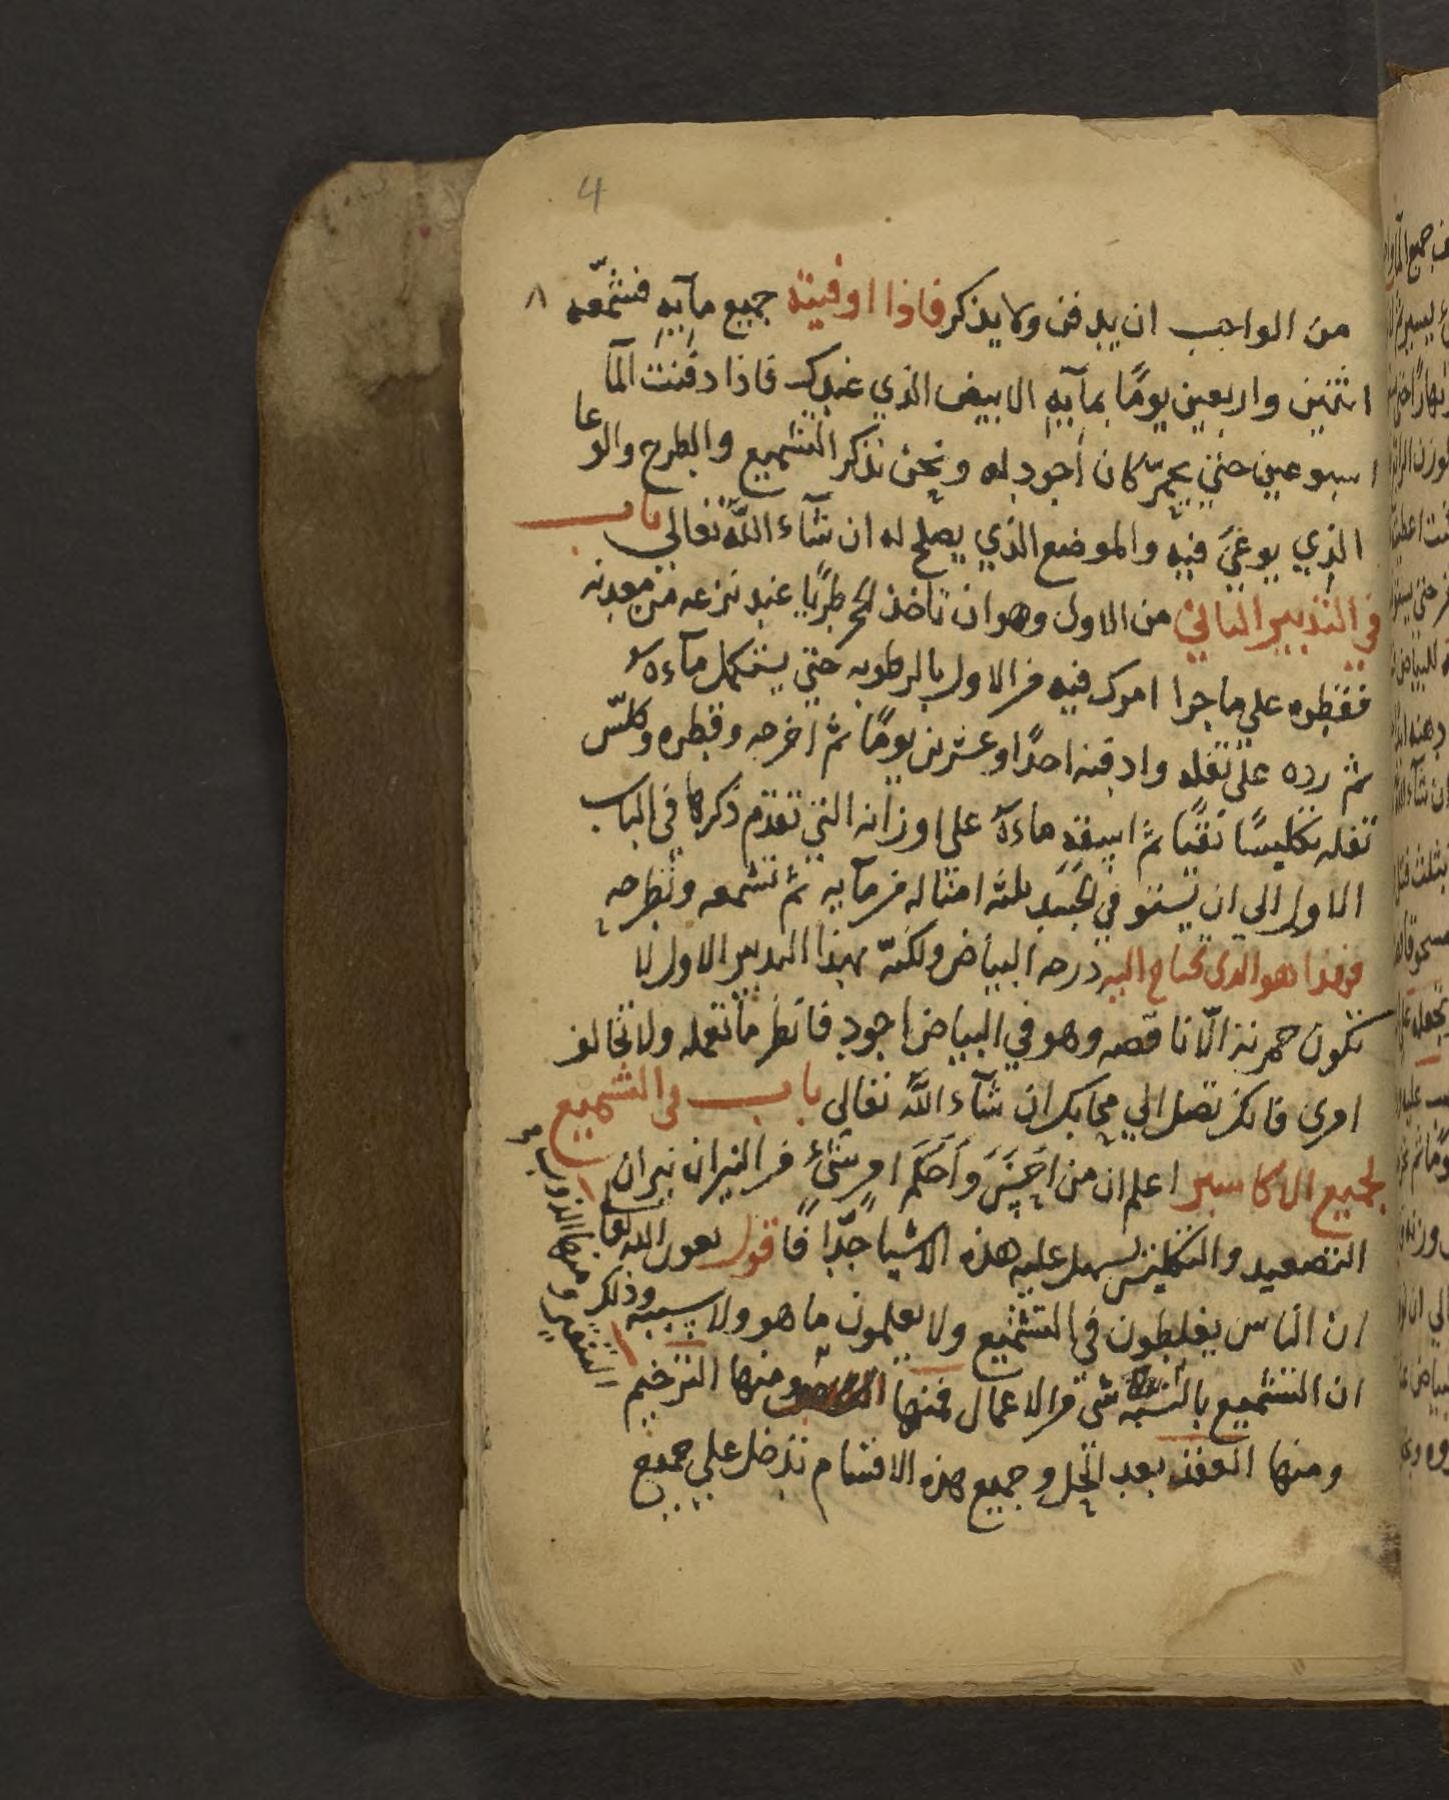 4
من الواجب ان يدفن ولا يذكر فاذا اوفيته جميع مآيه فشمّعه ٨
اثنين واربعين يومًا بمآيه الابيض الذي عندك فاذا دفنت المآ
اسبوعين حتي يحمّر كان أجود له ونحن نذكر التشميع والطرح والوعا
الذي يوعيَ فيه والموضع الذي يصلح له ان شآء اللّه تعالي باب
في التدبير الثاني من الاول وهو ان تاخذ الحجر طريًا عند نزعه من معدنه
فقطره علي ما جرا امرك فيه من الاول بالرطوبه حتي يستكمل مآءه
ثم رده علي ثفله وادفنه احدًا وعشرين يومًا ثم اخرجه وقطره وكلسّ
ثفله تكليسًا نقيًا ثم اسقه ماءهُ علي اوزانه التي تقدم ذكرها في الباب
الاول الي ان يستوفي الجَسَد ثلثه امثاله من مآيه ثم تشمعه وتطرحه
فهذا هو الذي تحتاج اليه درجه البياض ولكنّه بهذا التدبير الاول لا
تكون حمرته الّا ناقصه وهو في البياض اجود فانظر ما تعمله ولا تخالف
امري فانك تصل الي محابك ان شآء اللّه تعالي باب في التشميع
لجميع الاكاسير اعلم ان من احسَنَ وَاَحكَم امر شيء من النيران نيران
التصعيد والتكليس يسهل عليه هذه الاشيا جدًّا فاقول بعون الله تعا
ان الناس يغلطون في التشميع ولا يعلمون ما هو ولا سببه وذلك
ان التشميع بالنسبه شي من الاعمال فمنها ومنها الترخيم
ومنها العقد بعد الحل وجميع هذه الاقسام تدخل علي جميع
ومنها الذوب
التشميع